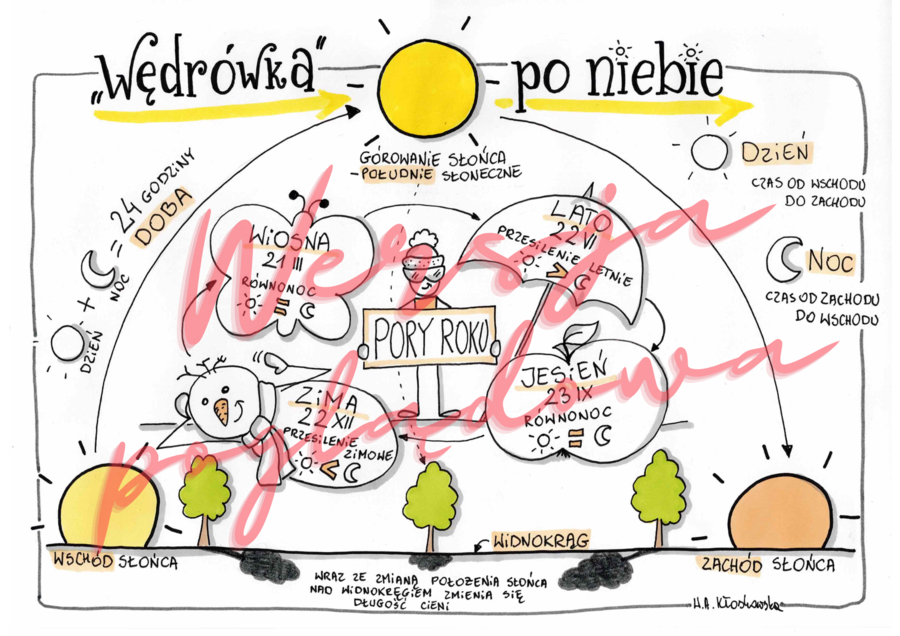 „Wędrówka" po niebie
GÓROWANIE SŁOŃCA
- POŁUDNIE SŁONECZNE
DZIEŃ
CZAS OD WSCHODU
DO ZACHODU
NOC
CZAS OD ZACHODU
DO WSCHODU
DZIEŃ + NOC = 24 GODZINY
DOBA
WIOSNA
21 III
RÓWNONOC
=
LATO
22 VI
PRZESILENIE LETNIE
>
PORY ROKU
JESIEŃ
23 IX
RÓWNONOC
=
ZIMA
22 XII
PRZESILENIE
ZIMOWE
<
Wersja
poglądowa
WIDNOKRĄG
WSCHÓD SŁOŃCA
ZACHÓD SŁOŃCA
WRAZ ZE ZMIANĄ POŁOŻENIA SŁOŃCA
NAD WIDNOKRĘGIEM ZMIENIA SIĘ
DŁUGOŚĆ CIENI